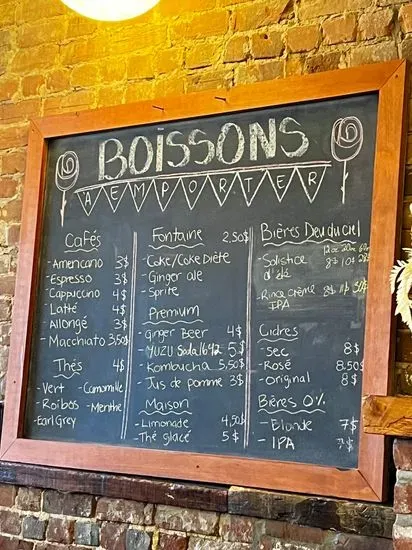 BOISSONS
A EMPORTER
Cafés
-Americano 3$
-Espresso 3$
-Cappuccino 4$
-Latté 4$
-Allongé 3$
-Macchiato 3,50$
Thés 4$
-Vert -Camomille
-Roibos -Menthe
-Earl Grey
Fontaine 2,50$
-Coke/Coke Diète
-Ginger ale
-Sprite
Premium
-Ginger Beer 4$
-YUZU Soda 1642 5$
-Kombucha 5,50$
-Jus de pomme 3$
Maison
-Limonade 4,50$
-Thé glacé 5$
Bières Dieu du ciel
12oz 20oz 60oz
-Solstice 8$ 10$ 28$
d'été
-Rince Crème 8$ 11$
IPA
Cidres
-Sec 8$
-Rosé 8.50$
-Original 8$
Bières 0%
-Blonde 7$
-IPA 7$